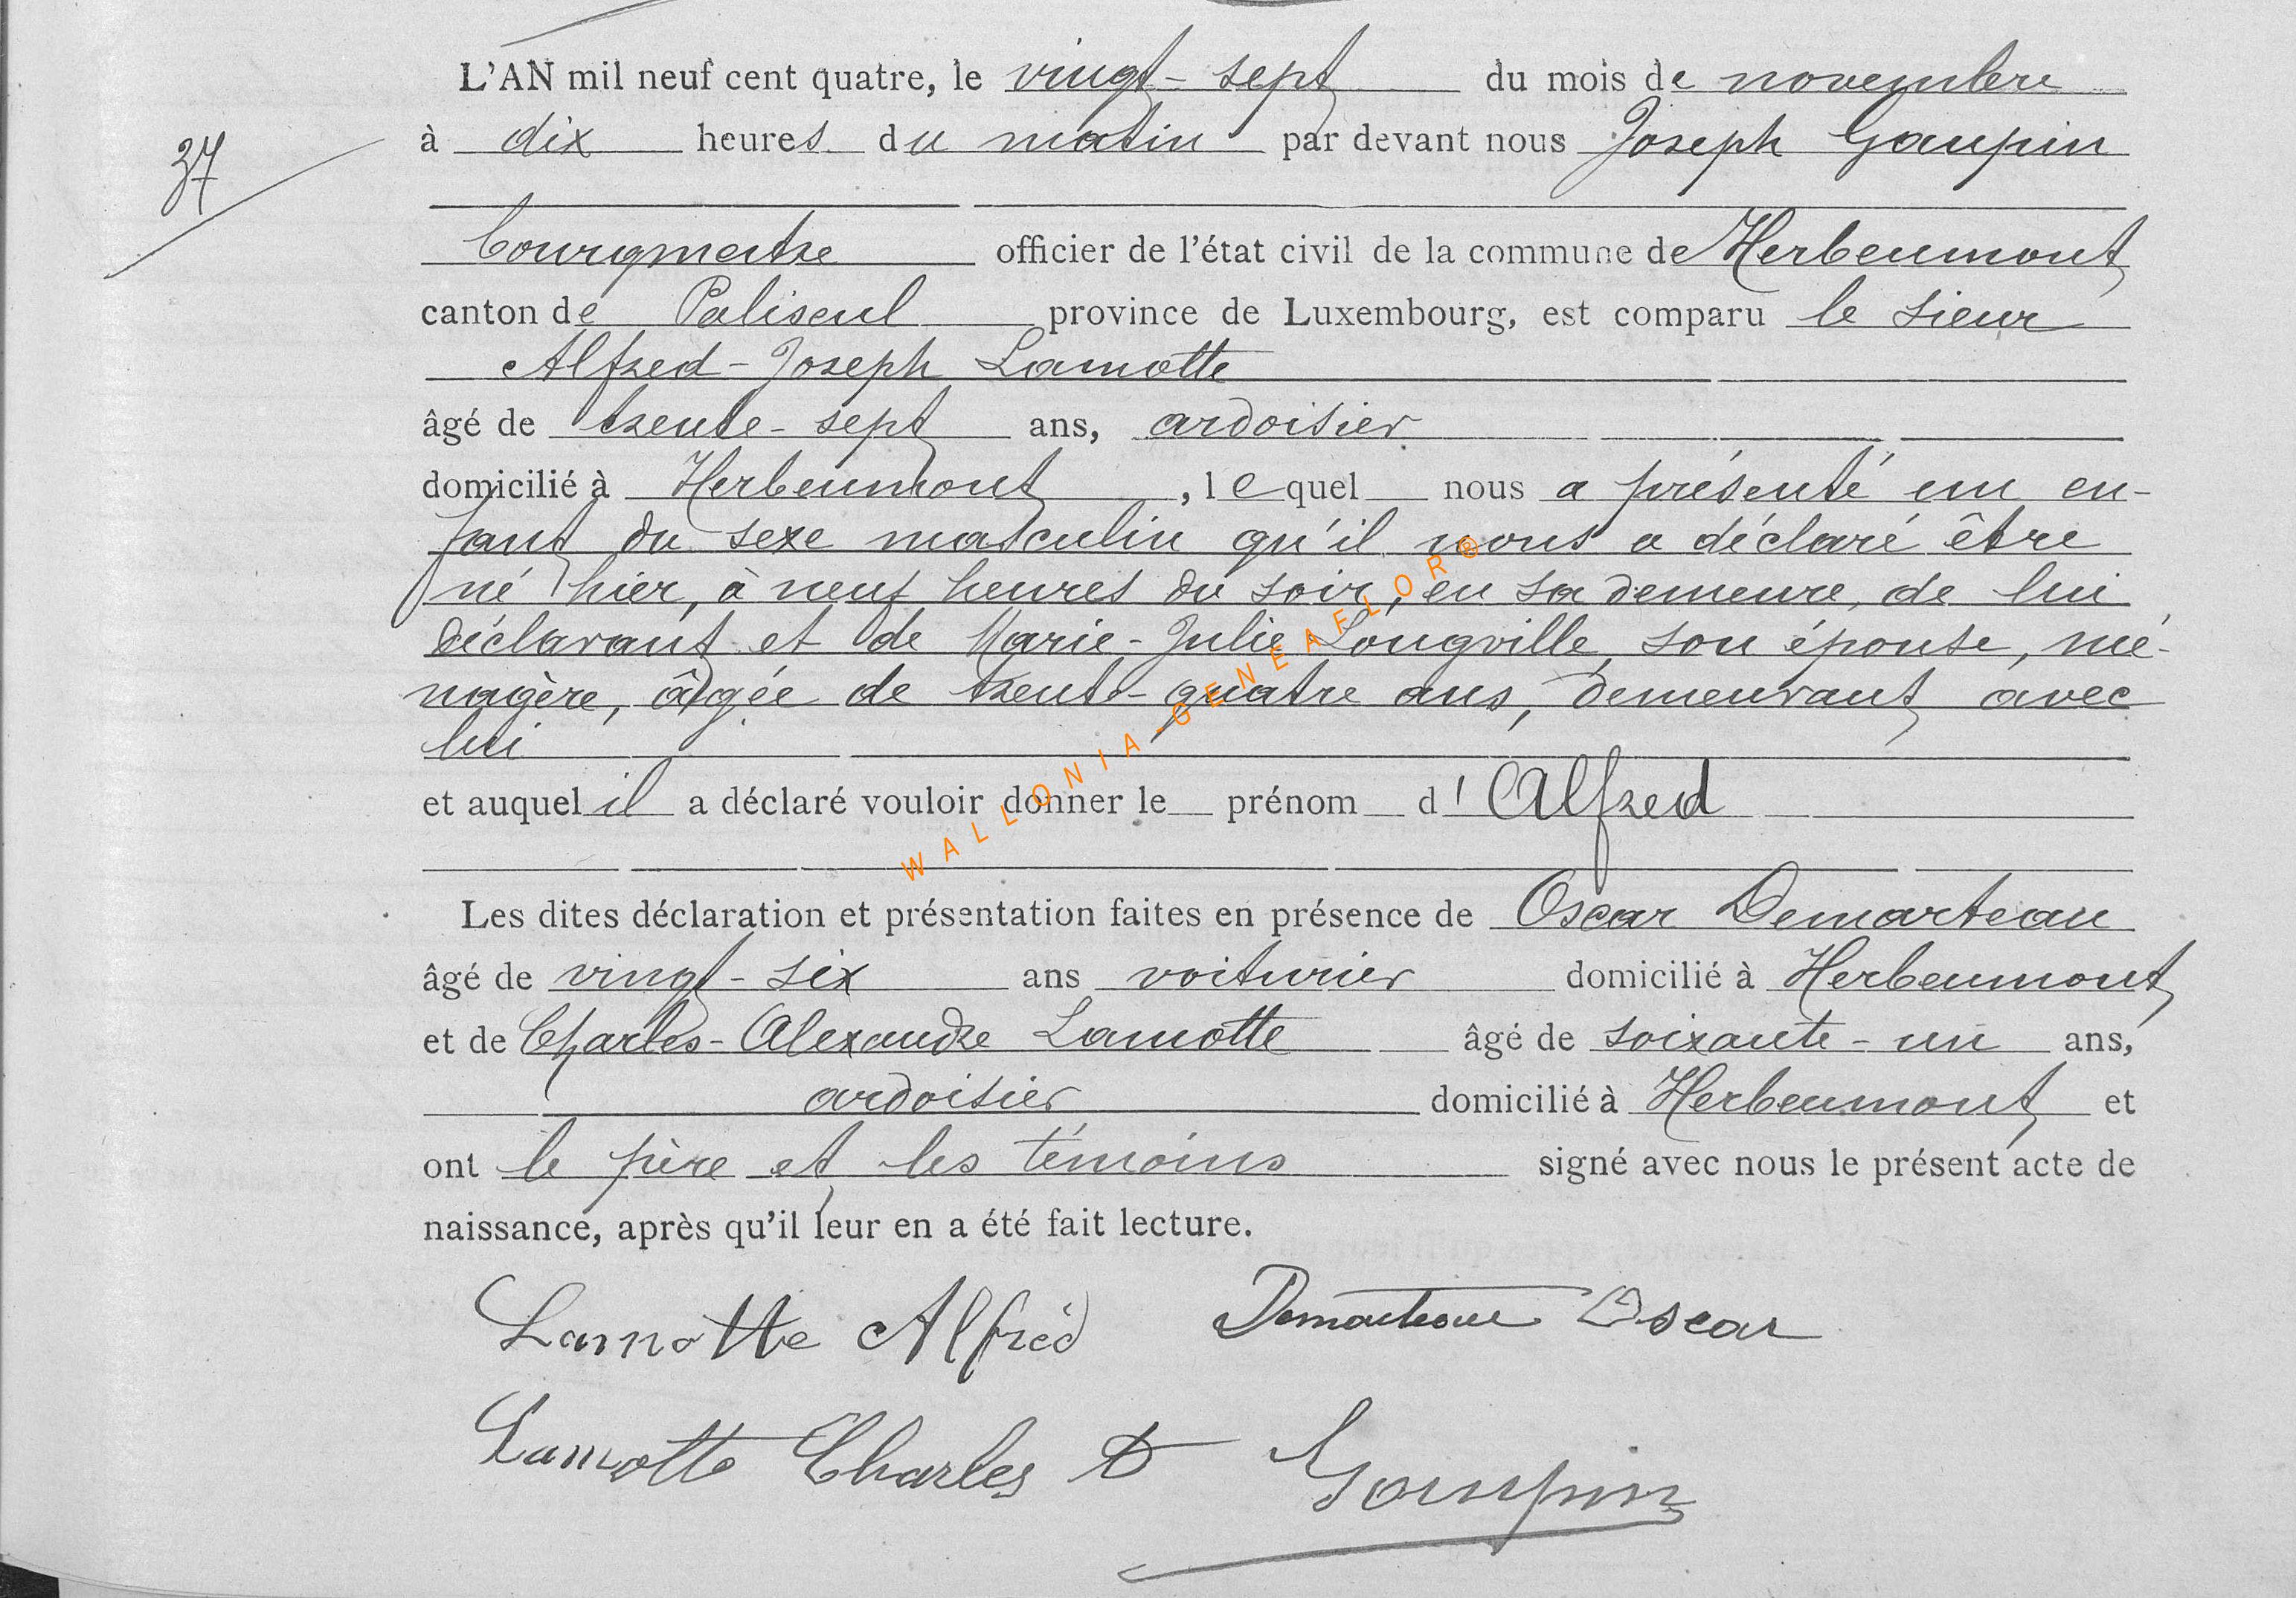 L'AN mil neuf cent quatre, le vingt-sept du mois de novembre
37
à dix heures du matin par devant nous Joseph Goupin
bourgmestre officier de l'état civil de la commune de Herbeumont
canton de Paliseul province de Luxembourg, est comparu le sieur
Alfred-Joseph Lamotte
âgé de trente-sept ans, ardoisier
domicilié à Herbeumont, lequel nous a présenté un en-
fant du sexe masculin qu'il nous a déclaré être
né hier, à neuf heures du soir, en sa demeure, de lui
déclarant et de Marie-Julie Longville, son épouse, mé-
nagère, âgée de trente-quatre ans, demeurant avec
lui
et auquel il a déclaré vouloir donner le prénom d'Alfred
Les dites déclaration et présentation faites en présence de Oscar Demarteau
âgé de vingt-six ans voiturier domicilié à Herbeumont
et de Charles-Alexandre Lamotte âgé de soixante-un ans,
ardoisier domicilié à Herbeumont et
ont le père et les témoins signé avec nous le présent acte de
naissance, après qu'il leur en a été fait lecture.
Lamotte Alfred Demarteau Oscar
Lamotte Charles Goupin
WALLONIA-GENEAFLOR®